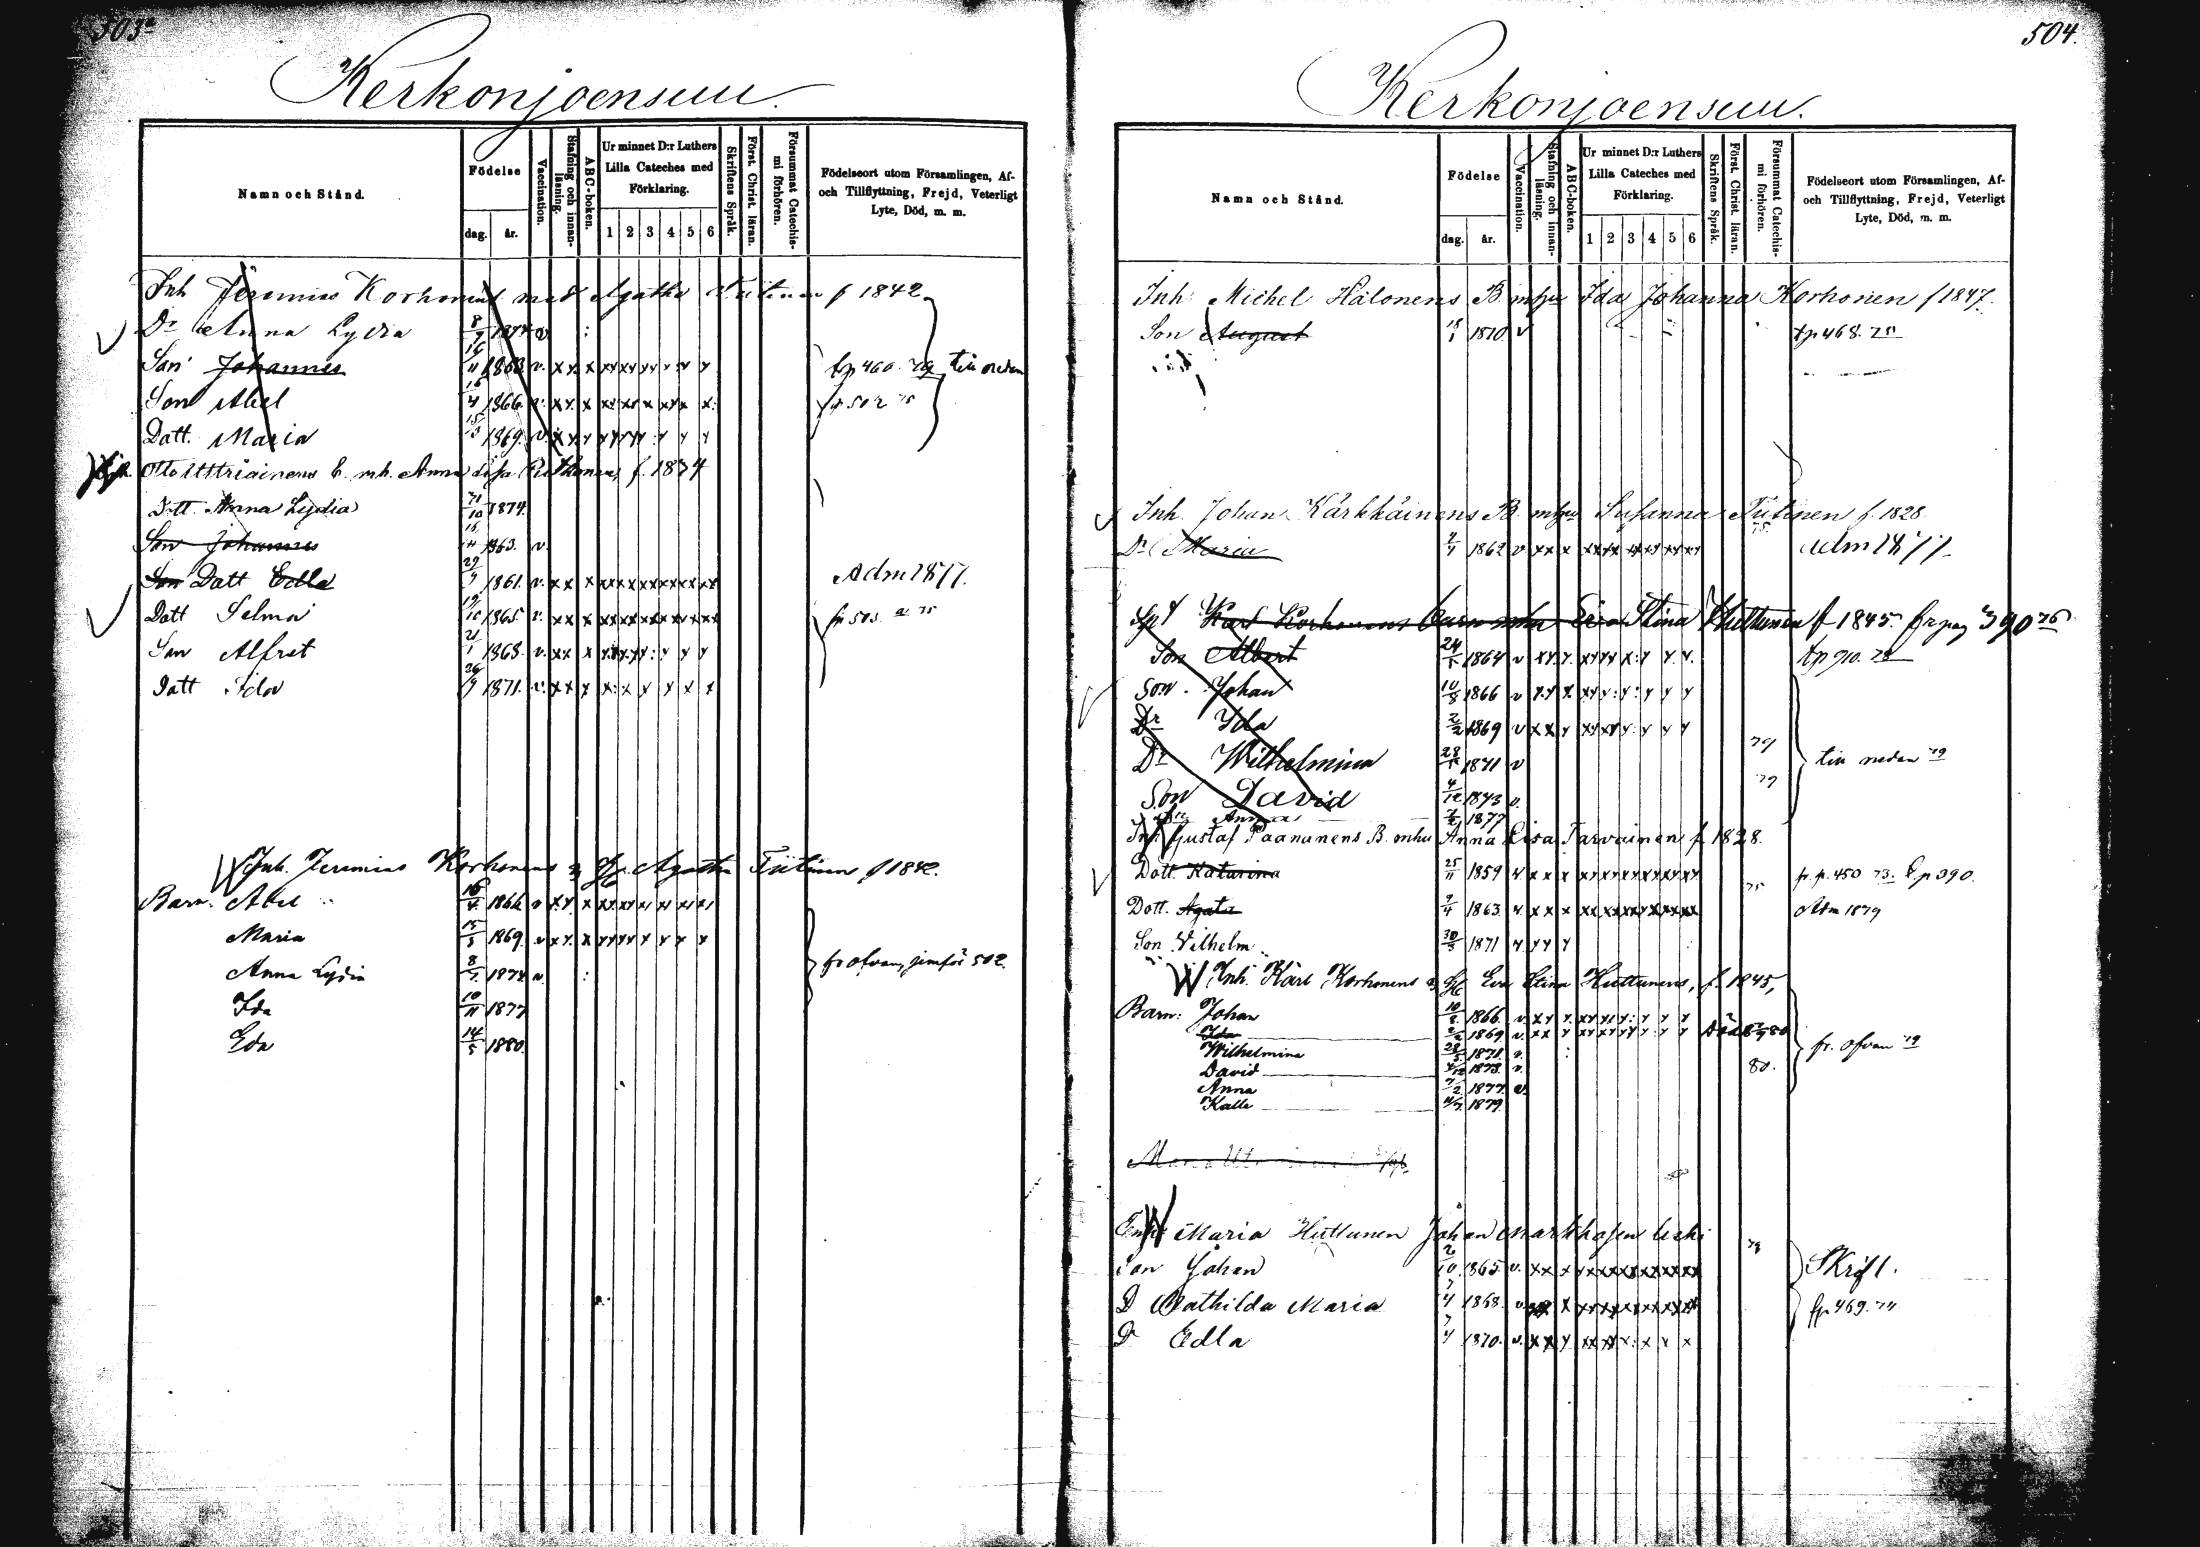 503a
Kerkonjoensuu.
Namn och Stånd.
Födelse
dag. år.
Vaccination.
Stafning och innanläsning.
ABC-boken.
Ur minnet D:r Luthers
Lilla Cateches med
Förklaring.
1 2 3 4 5 6
Skriftens Språk.
Först. Christ. läran.
Försummat Catechismi förhören.
Födelseort utom Församlingen, Af-
och Tillflyttning, Frejd, Veterligt
Lyte, Död, m. m.
Inh Jeremias Korhonens med Agatha Tiitinen f 1842
Dr Anna Lydia 8/7 1874 v.
Son Johannes 1863 v. tp 460
Son Abel 16/4 1866 v. fp 502 75
Datt. Maria 15/3 1869 v.
Otto Uttriainens E. mh. Anna f. 1834
Dtt. Anna Lydia 1874
Son Johannes 1863. v.
Son Datt Edla 29/9 1861. v. Adm 1877.
Datt Selma 1865. v. fp 503. a 75
Son Alfret 21/1 1868. v.
Datt Ida 26/9 1871. v.
Inh. Jeremias Korhonens Agatha Tiitinen f 1842.
Barn: Abel 16/4 1866 v
Maria 15/3 1869 v
Anna Lydia 8/7 1874 v. fr ofvan, jemför 502.
Ida 10/11 1877
Eda 14/5 1880.
504.
Kerkonjoensuu.
Namn och Stånd.
Födelse
dag. år.
Vaccination.
Stafning och innanläsning.
ABC-boken.
Ur minnet D:r Luthers
Lilla Cateches med
Förklaring.
1 2 3 4 5 6
Skriftens Språk.
Först. Christ. läran.
Försummat Catechismi förhören.
Födelseort utom Församlingen, Af-
och Tillflyttning, Frejd, Veterligt
Lyte, Död, m. m.
Inh: Michel Halonens B mhu Ida Johanna Korhonen f 1847.
Son August 1870 v tp 468. 75
Inh. Johan Kärkkäinens B. mhu Susanna Tiitinen f. 1828
Dr Maria 1862 v 75 Adm 1877.
Karl Korhonens barn mhu Eva Stina Huttunen f 1845 fr pag 390 76
Son Albert 1864 v tp 710. 78
Son. Johan 10/8 1866 v
Dr Ida 2/2 1869 v
Dr Wilhelmina 1871 v 79 tia nedan 79
Son David 4/12 1873 v. 79
Dr Anna 7/2 1877
Inh Gustaf Paanunens B. mhu Anna Lisa Tarvainen f. 1828.
Dott. Katarina 25/11 1859 v 75 fr. p. 450 73. p 390.
Dott. Agata 1863 v Adm 1879
Son Vilhelm 30/3 1871 v
Inh: Karl Korhonens Eva Stina Huttunens, f. 1845,
Barn: Johan 10/8 1866 v.
Ida 2/2 1869 v. Död 80
Wilhelmina 1871. v. fr. ofvan 79
David 4/12 1873. v. 80.
Anna 7/2 1877 v.
Kalle 1879
Maria Huttunen Johan Markkasen leski 79
Son Johan 2/10 1865 v. Skrift.
D Mathilda Maria 1868. v. fp 469. 74
D Edla 1870. v.